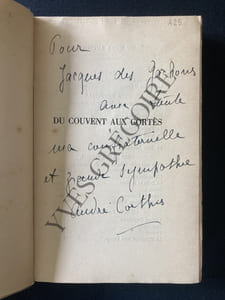 A25
Pour
Jacques des Gachons
avec toute
DU COUVENT AUX CORTÈS
ma confraternelle
et grande sympathie
André Corthis
YVES GRÉGOIRE